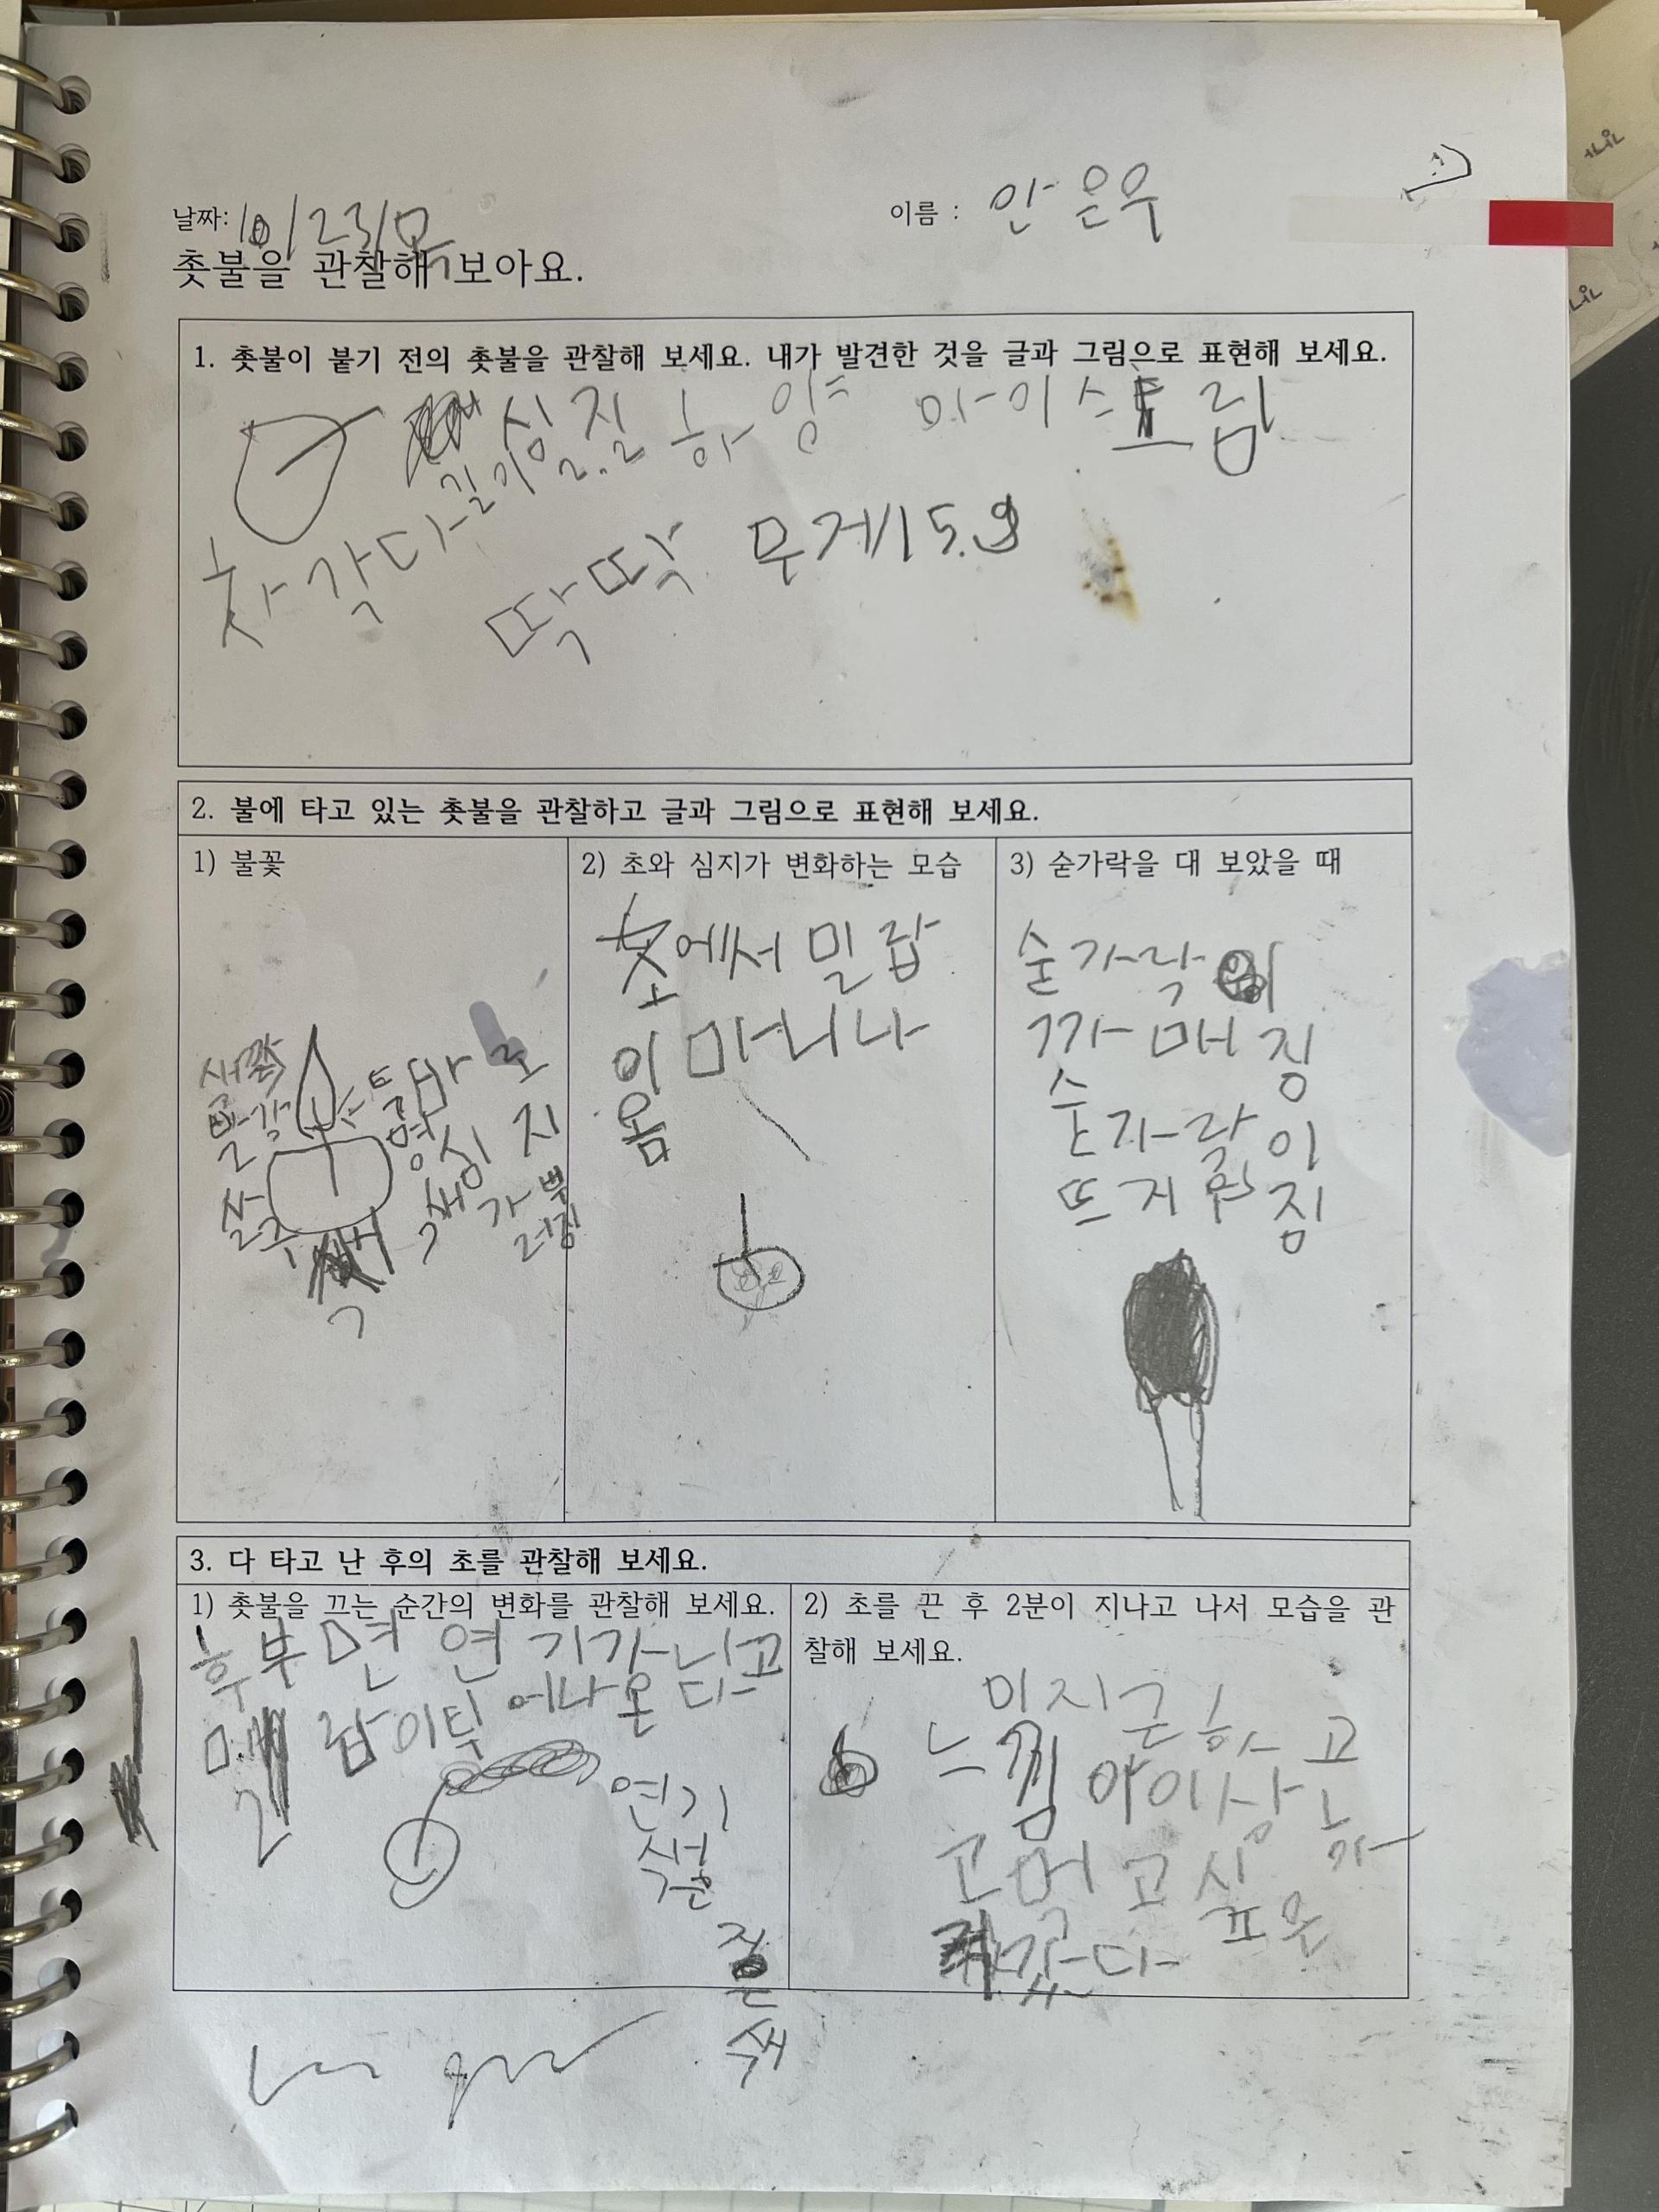 날짜: 10/23/목
이름 : 안은우
촛불을 관찰해 보아요.
1. 촛불이 붙기 전의 촛불을 관찰해 보세요. 내가 발견한 것을 글과 그림으로 표현해 보세요.
싱질 하양 아이스크림
길이 2.2
차갑다
딱딱 무게 15.9
2. 불에 타고 있는 촛불을 관찰하고 글과 그림으로 표현해 보세요.
1) 불꽃
빨강
심지
가 뿌
러짐
2) 초와 심지가 변화하는 모습
촛에서 밀랍
이 마니나
옴
3) 숟가락을 대 보았을 때
숟가락이
까매징
숟가락이
뜨거워짐
3. 다 타고 난 후의 초를 관찰해 보세요.
1) 촛불을 끄는 순간의 변화를 관찰해 보세요.
후 부면 연기가 나고
밀랍이 튀어나온다
연기
색은
짙은
색
2) 초를 끈 후 2분이 지나고 나서 모습을 관
찰해 보세요.
미지근하고
느낌 아이상
고 먹고 싶은